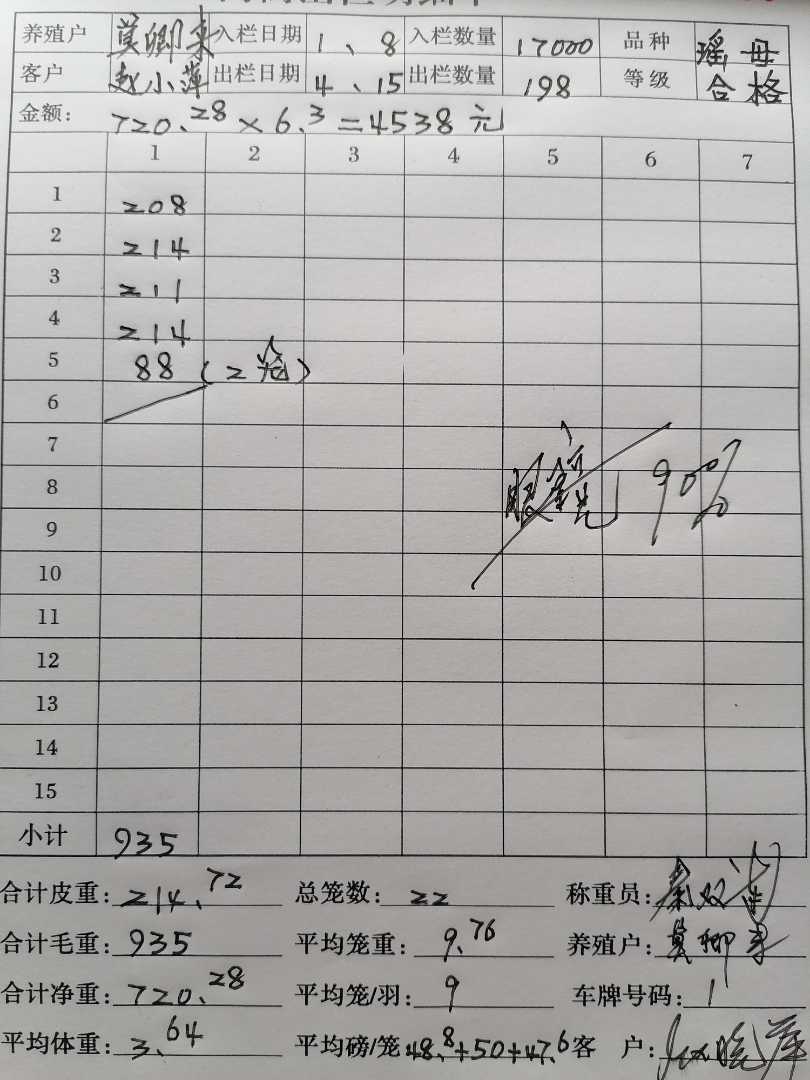 养殖户 莫卿来 入栏日期 1、8 入栏数量 17000 品种 瑶母
客户 赵小萍 出栏日期 4、15 出栏数量 198 等级 合格
金额: 720.28×6.3=4538元
1 2 3 4 5 6 7
1 208
2 214
3 211
4 214
5 88(2笼)
6
7
8 90%
9
10
11
12
13
14
15
小计 935
合计皮重: 214.72 总笼数: 22 称重员:
合计毛重: 935 平均笼重: 9.76 养殖户: 莫卿来
合计净重: 720.28 平均笼/羽: 9 车牌号码: 1
平均体重: 3.64 平均磅/笼 48.8+50+47.6 客户: